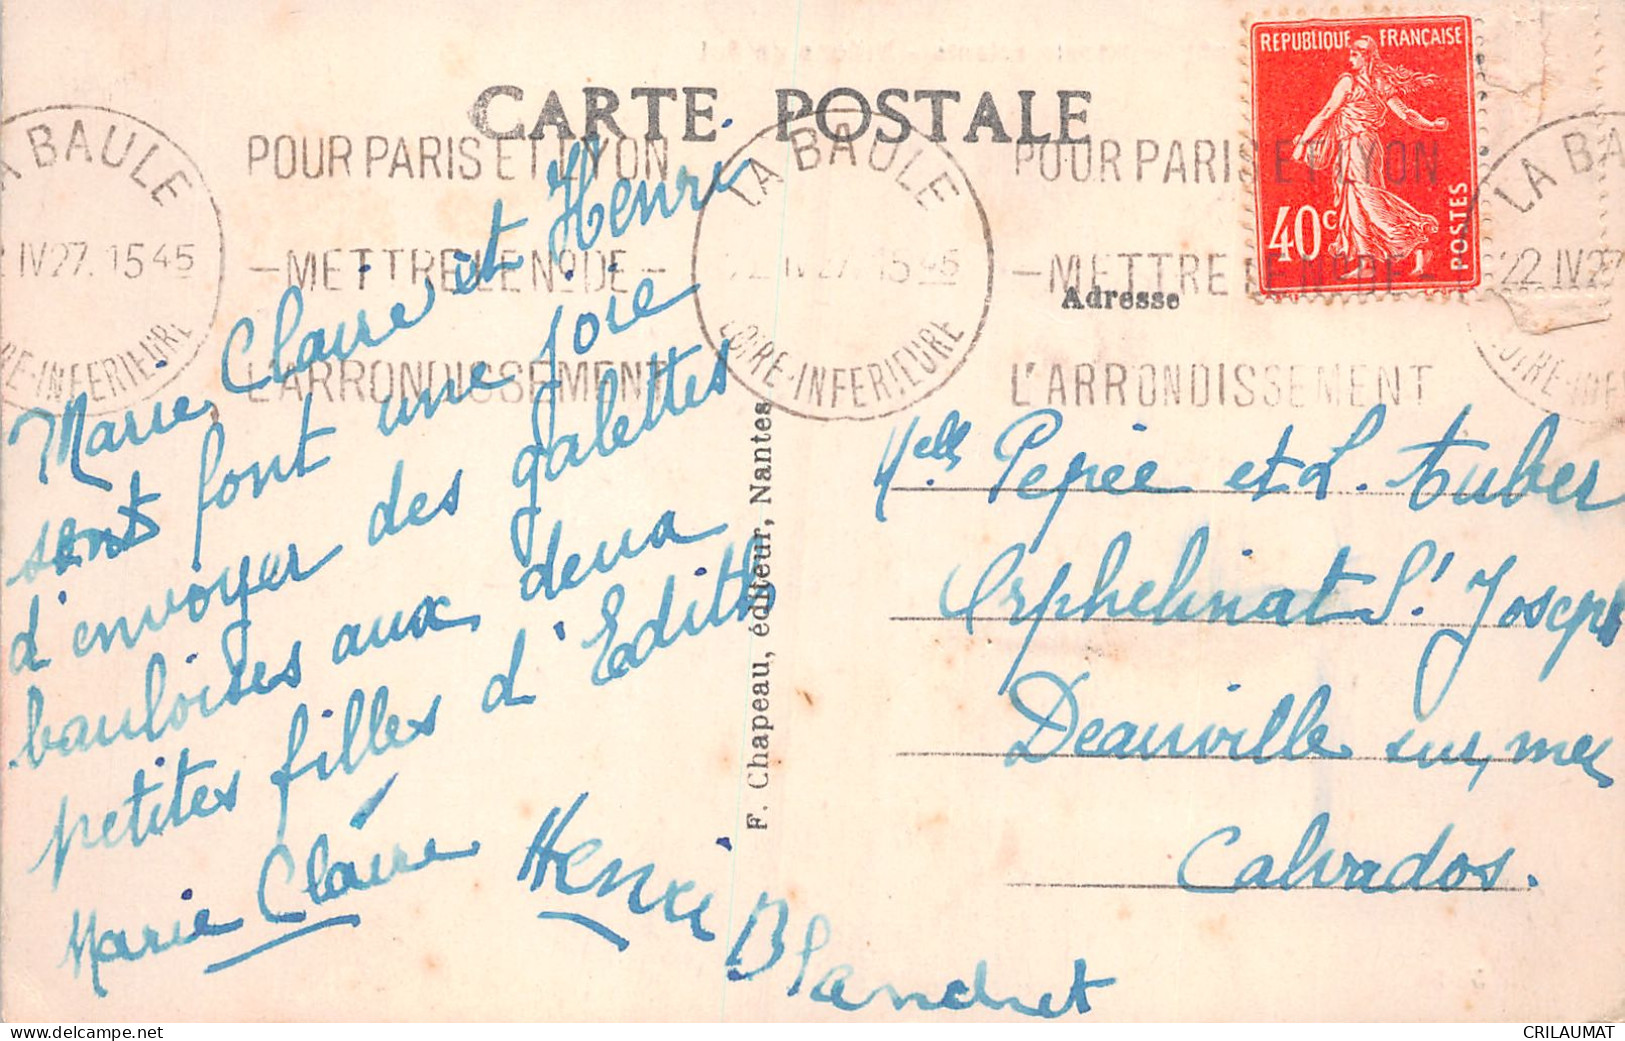 CARTE POSTALE
RÉPUBLIQUE FRANÇAISE
40c
POSTES
LA BAULE
22 IV 27. 15 45
LOIRE-INFERIEURE
POUR PARIS ET LYON
— METTRE LE No DE —
L'ARRONDISSEMENT
LA BAULE
22 IV 27 15 45
LOIRE-INFERIEURE
POUR PARIS ET LYON
— METTRE LE No DE —
L'ARRONDISSEMENT
LA BA
22 IV 27
LOIRE-INFE
Adresse
Marie Claire et Henri
font une joie
d'envoyer des galettes
bauloises aux deux
petites filles d'Edith
Marie Claire Henri Blandret
F. Chapeau, éditeur, Nantes
Melles Pepée et L. Auber
Orphelinat St Joseph
Deauville sur mer
Calvados.
CRILAUMAT